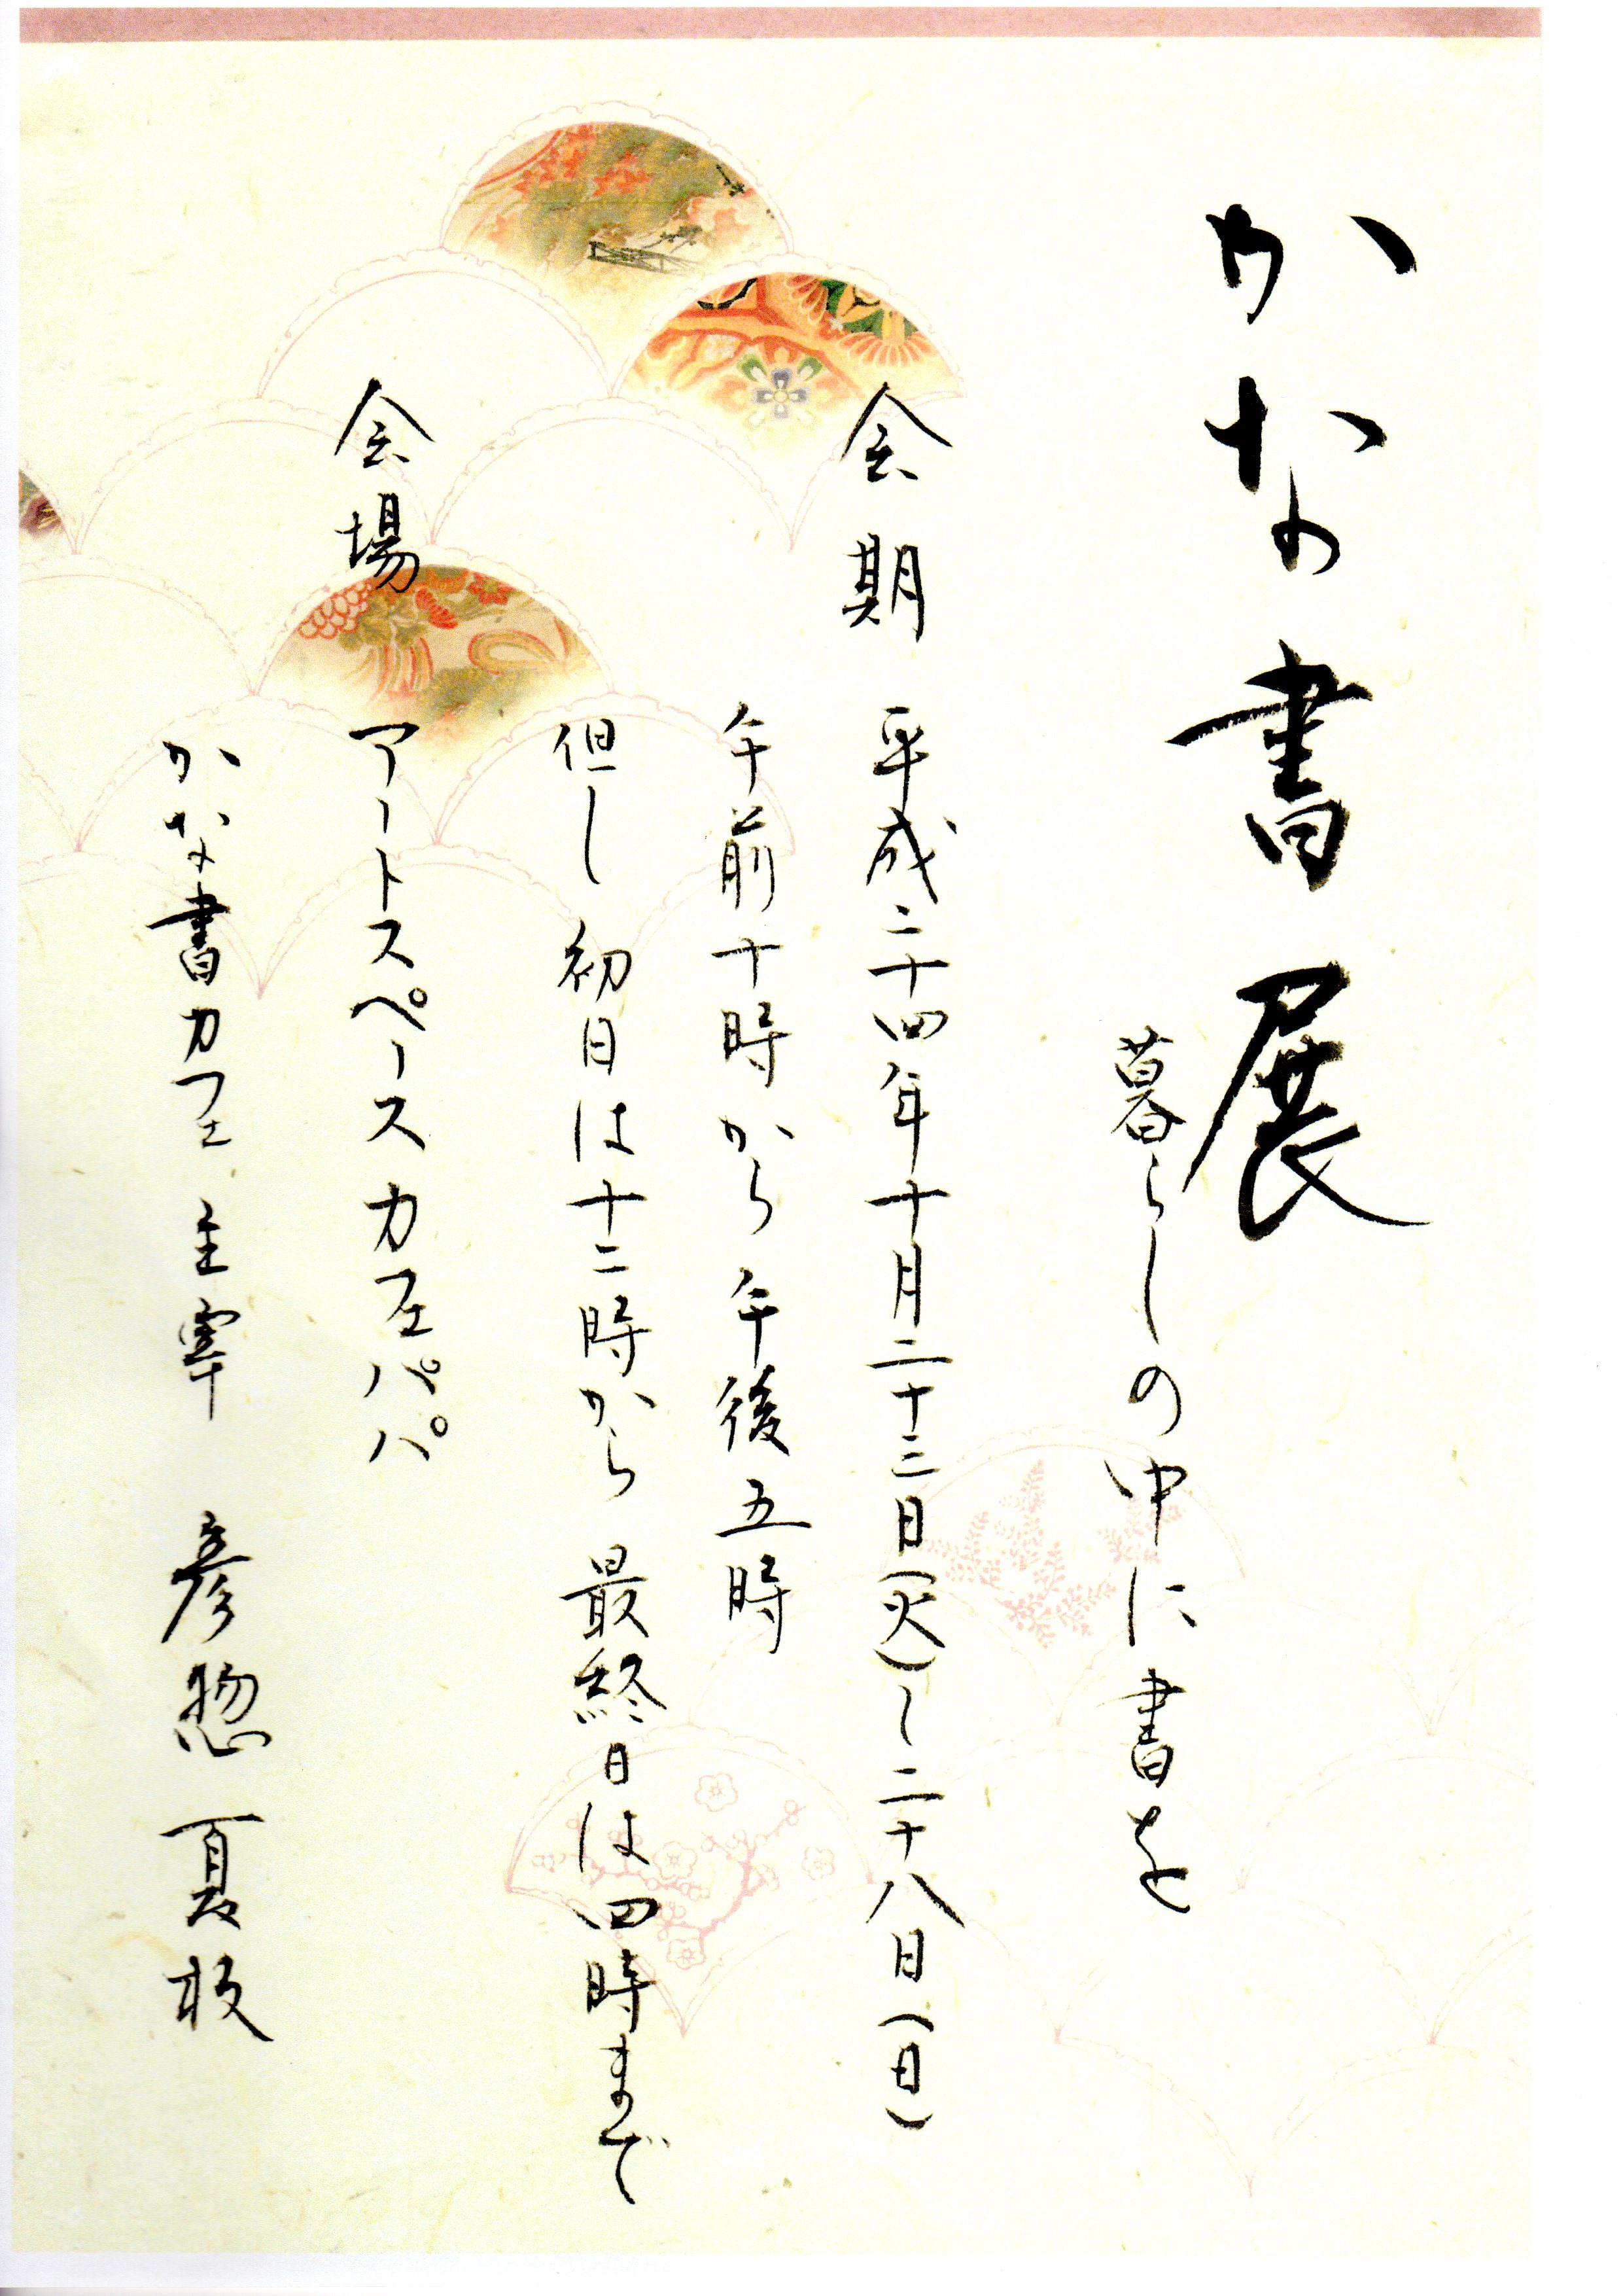 かな書展
暮らしの中に書を
会期 平成二十四年十月二十三日(火)〜二十八日(日)
午前十時から午後五時
但し 初日は十二時から 最終日は四時まで
会場 アートスペース カフェパパ
かな書カフェ 主宰 彦惣 夏枝